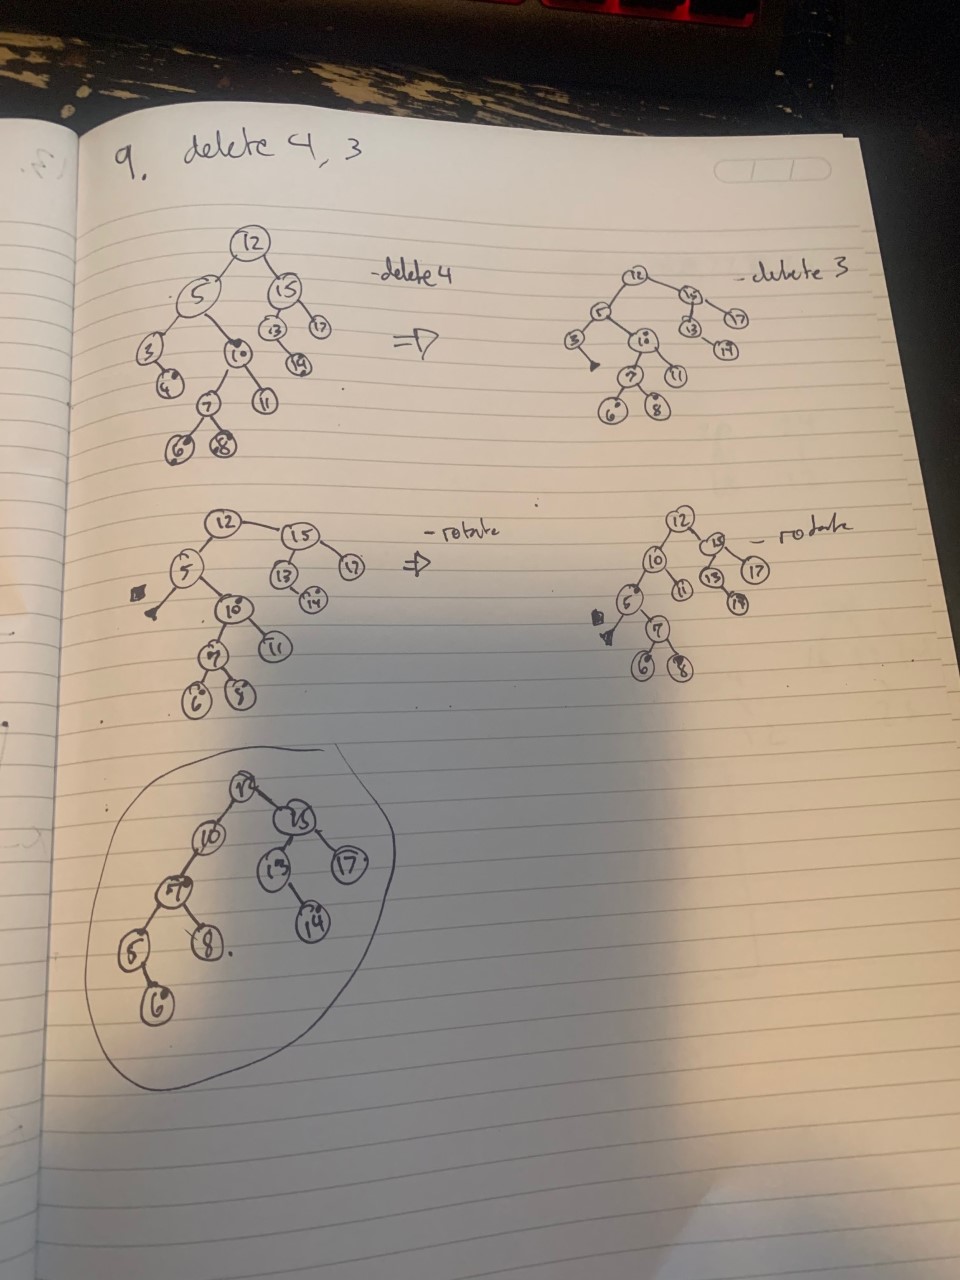 9. delete 4, 3
12
5 15
3 10 13 17
4 7 11 14
6 8
-delete 4
⇒
12
5 15
3 10 13 17
7 11 14
6 8
- delete 3
12 15
5 13 17
10 14
7 11
6 8
- rotate
⇒
12
10 15
5 11 13 17
7 14
6 8
- rotate
12
10 15
7 13 17
5 8 14
6